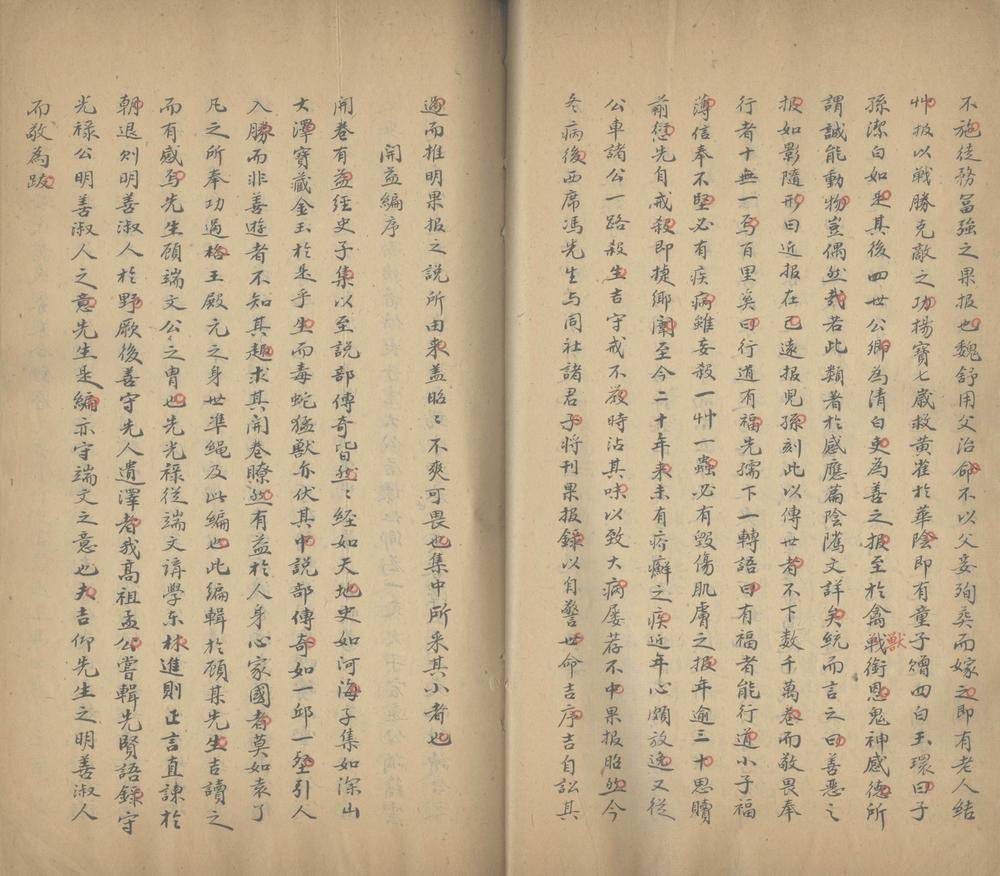 不施徒務富強之果报也魏舒用父治命不以父妾殉葬而嫁之即有老人結
艸报以戦勝克敵之功揚寶七歲救黄雀於華陰即有童子贈四白玉環曰子
孫潔白如是其後四世公卿為清白吏為善之报至於禽戦獸銜恩鬼神感德所
謂誠能動物豈偶然哉若此類者於感應篇陰隲文詳矣統而言之曰善惡之
报如影隨形曰近报在己遠报兒孫刻此以傳世者不下数千萬卷而敬畏奉
行者十無一焉百里奚曰行道有福先孺下一轉語曰有福者能行道小子福
薄信奉不堅必有疾病雖妄殺一艸一蟲必有毀傷肌膚之报年逾三十思贖
前愆先自戒殺即捷鄉闈至今二十年來未有疥癬之疾近年心頗放逸又從
公車諸公一路殺生吉守戒不嚴時沾其味以致大病屢荐不中果报昭然今
冬病後西席馮先生与同社諸君子将刊果报錄以自警世命吉序吉自訟其
過而推明果报之説所由来盖昭〻不爽可畏也集中所采其小者也
開益編序
開卷有益経史子集以至説部傳奇皆然〻経如天地史如河海子集如深山
大澤寶藏金玉於是乎生而毒蛇猛獸亦伏其中説部傳奇如一邱一壑引人
入勝而非善遊者不知其趣求其開卷瞭然有益於人身心家國者莫如袁了
凡之所奉功過格王殿元之身世準繩及此編也此編輯於顧某先生吉讀之
而有感焉先生顧端文公之胄也先光禄従端文講學东林進則正言直諫於
朝退則明善淑人於野厥後善守先人遺澤者我高祖孟公嘗輯先賢語錄守
光禄公明善淑人之意先生是編亦守端文之意也夫吉仰先生之明善淑人
而敬為跋